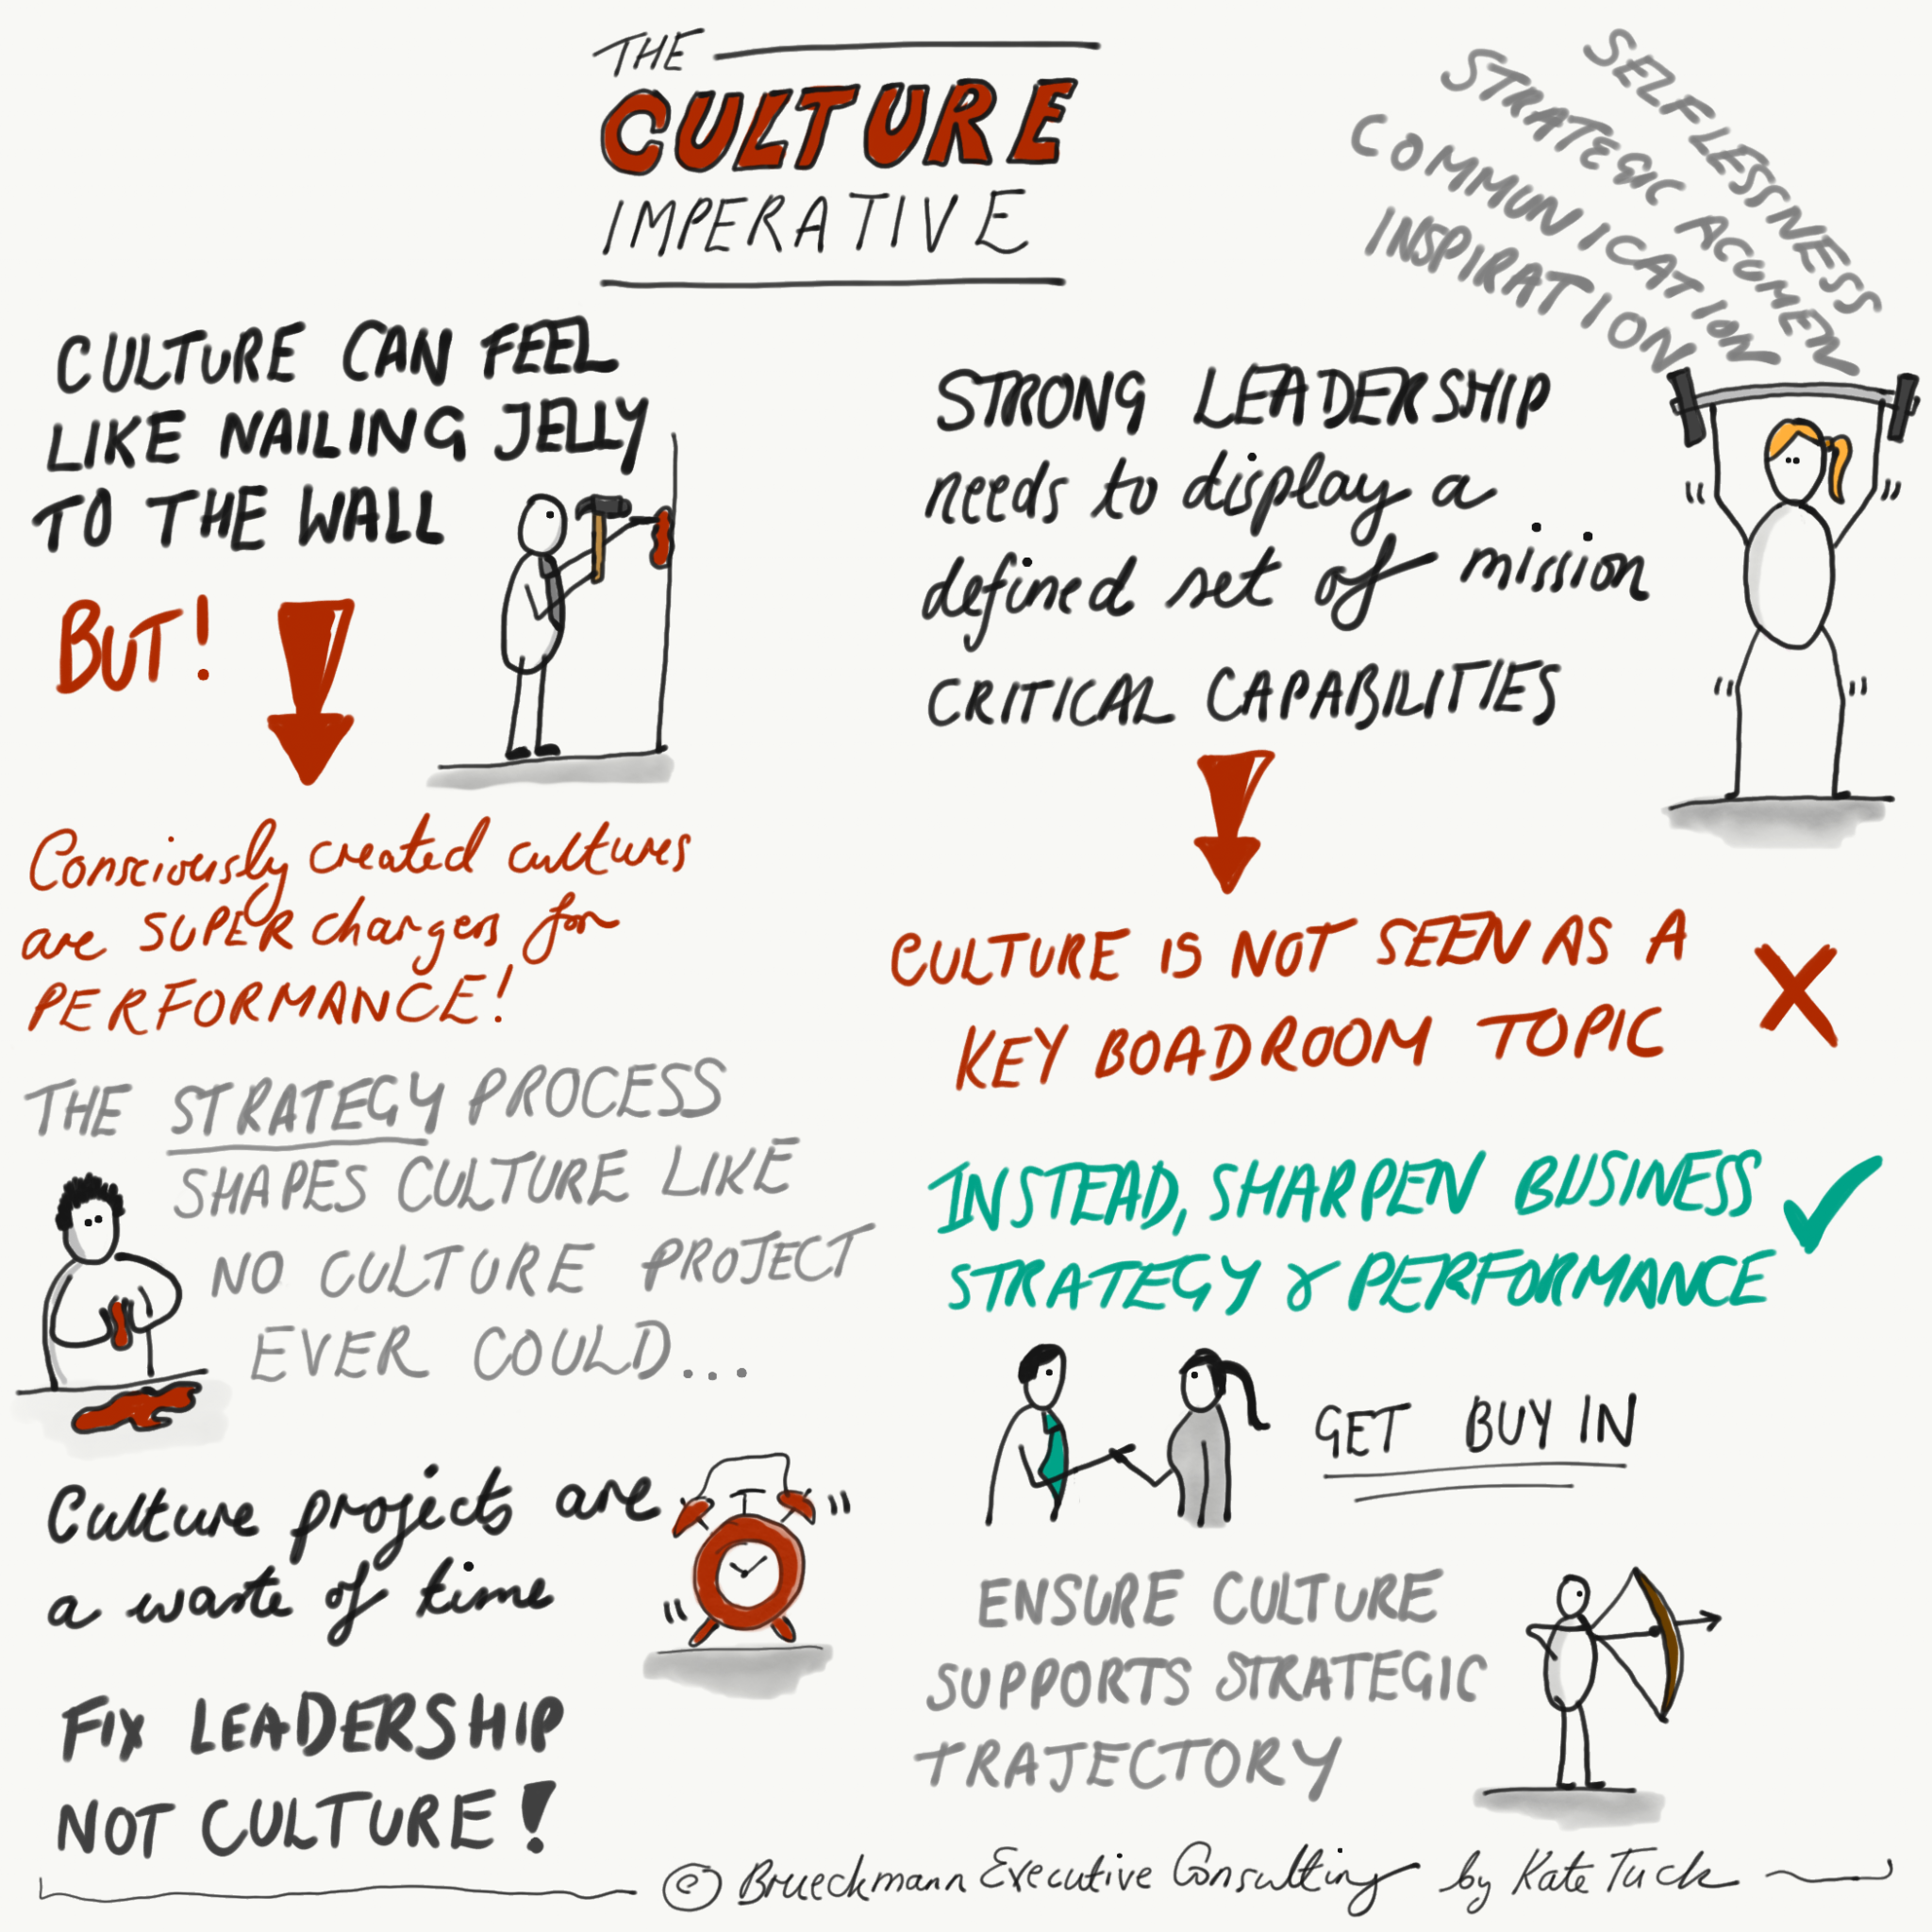 THE
CULTURE
IMPERATIVE
CULTURE CAN FEEL
LIKE NAILING JELLY
TO THE WALL
BUT!
Consciously created cultures
are SUPER chargers for
PERFORMANCE!
THE STRATEGY PROCESS
SHAPES CULTURE LIKE
NO CULTURE PROJECT
EVER COULD...
Culture projects are
a waste of time
FIX LEADERSHIP
NOT CULTURE!
SELFLESSNESS
STRATEGIC ACUMEN
COMMUNICATION
INSPIRATION
STRONG LEADERSHIP
needs to display a
defined set of mission
CRITICAL CAPABILITIES
CULTURE IS NOT SEEN AS A
KEY BOADROOM TOPIC
INSTEAD, SHARPEN BUSINESS
STRATEGY & PERFORMANCE
GET BUY IN
ENSURE CULTURE
SUPPORTS STRATEGIC
TRAJECTORY
© Brueckmann Executive Consulting by Kate Tuck